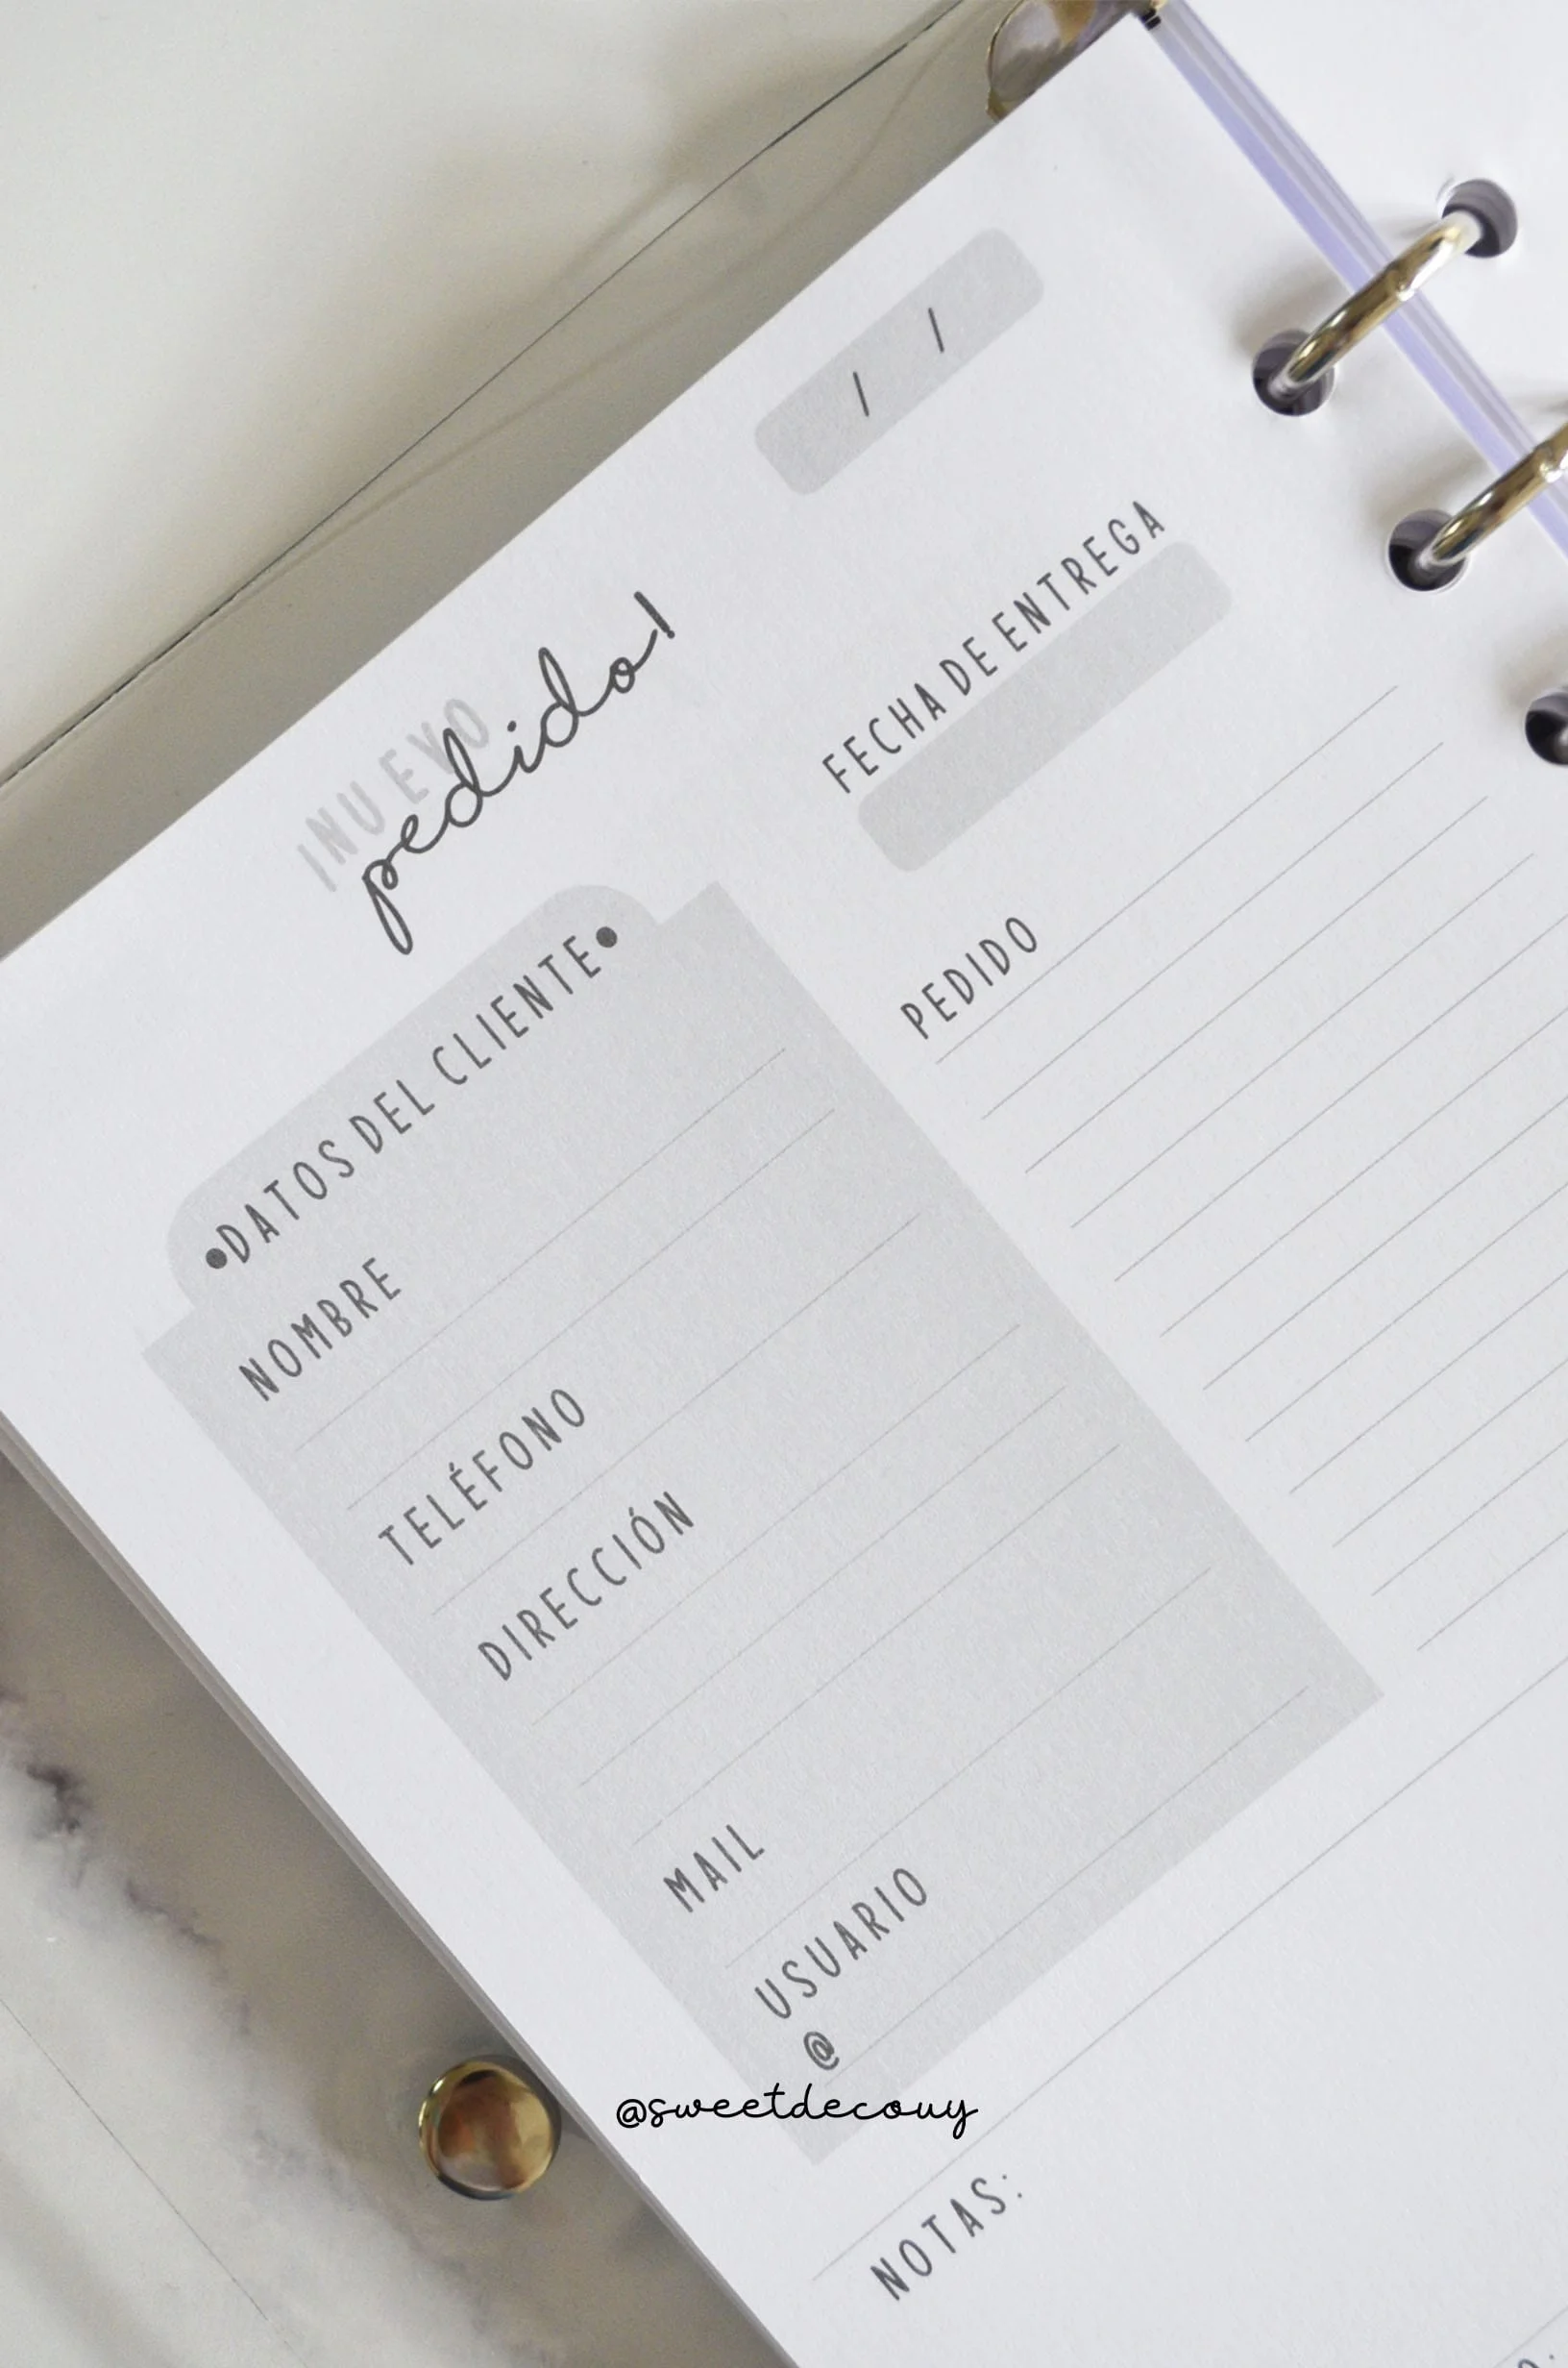 / /
¡NUEVO
pedido!
FECHA DE ENTREGA
•DATOS DEL CLIENTE•
NOMBRE
TELÉFONO
DIRECCIÓN
MAIL
USUARIO
@
PEDIDO
@sweetdecouy
NOTAS: